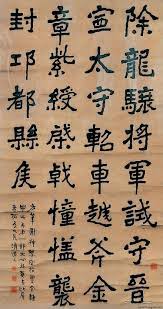 除龍驤將軍試守晉
寧太守軺車越斧金
章紫綬棨戟幢蓋襲
封邛都縣侯